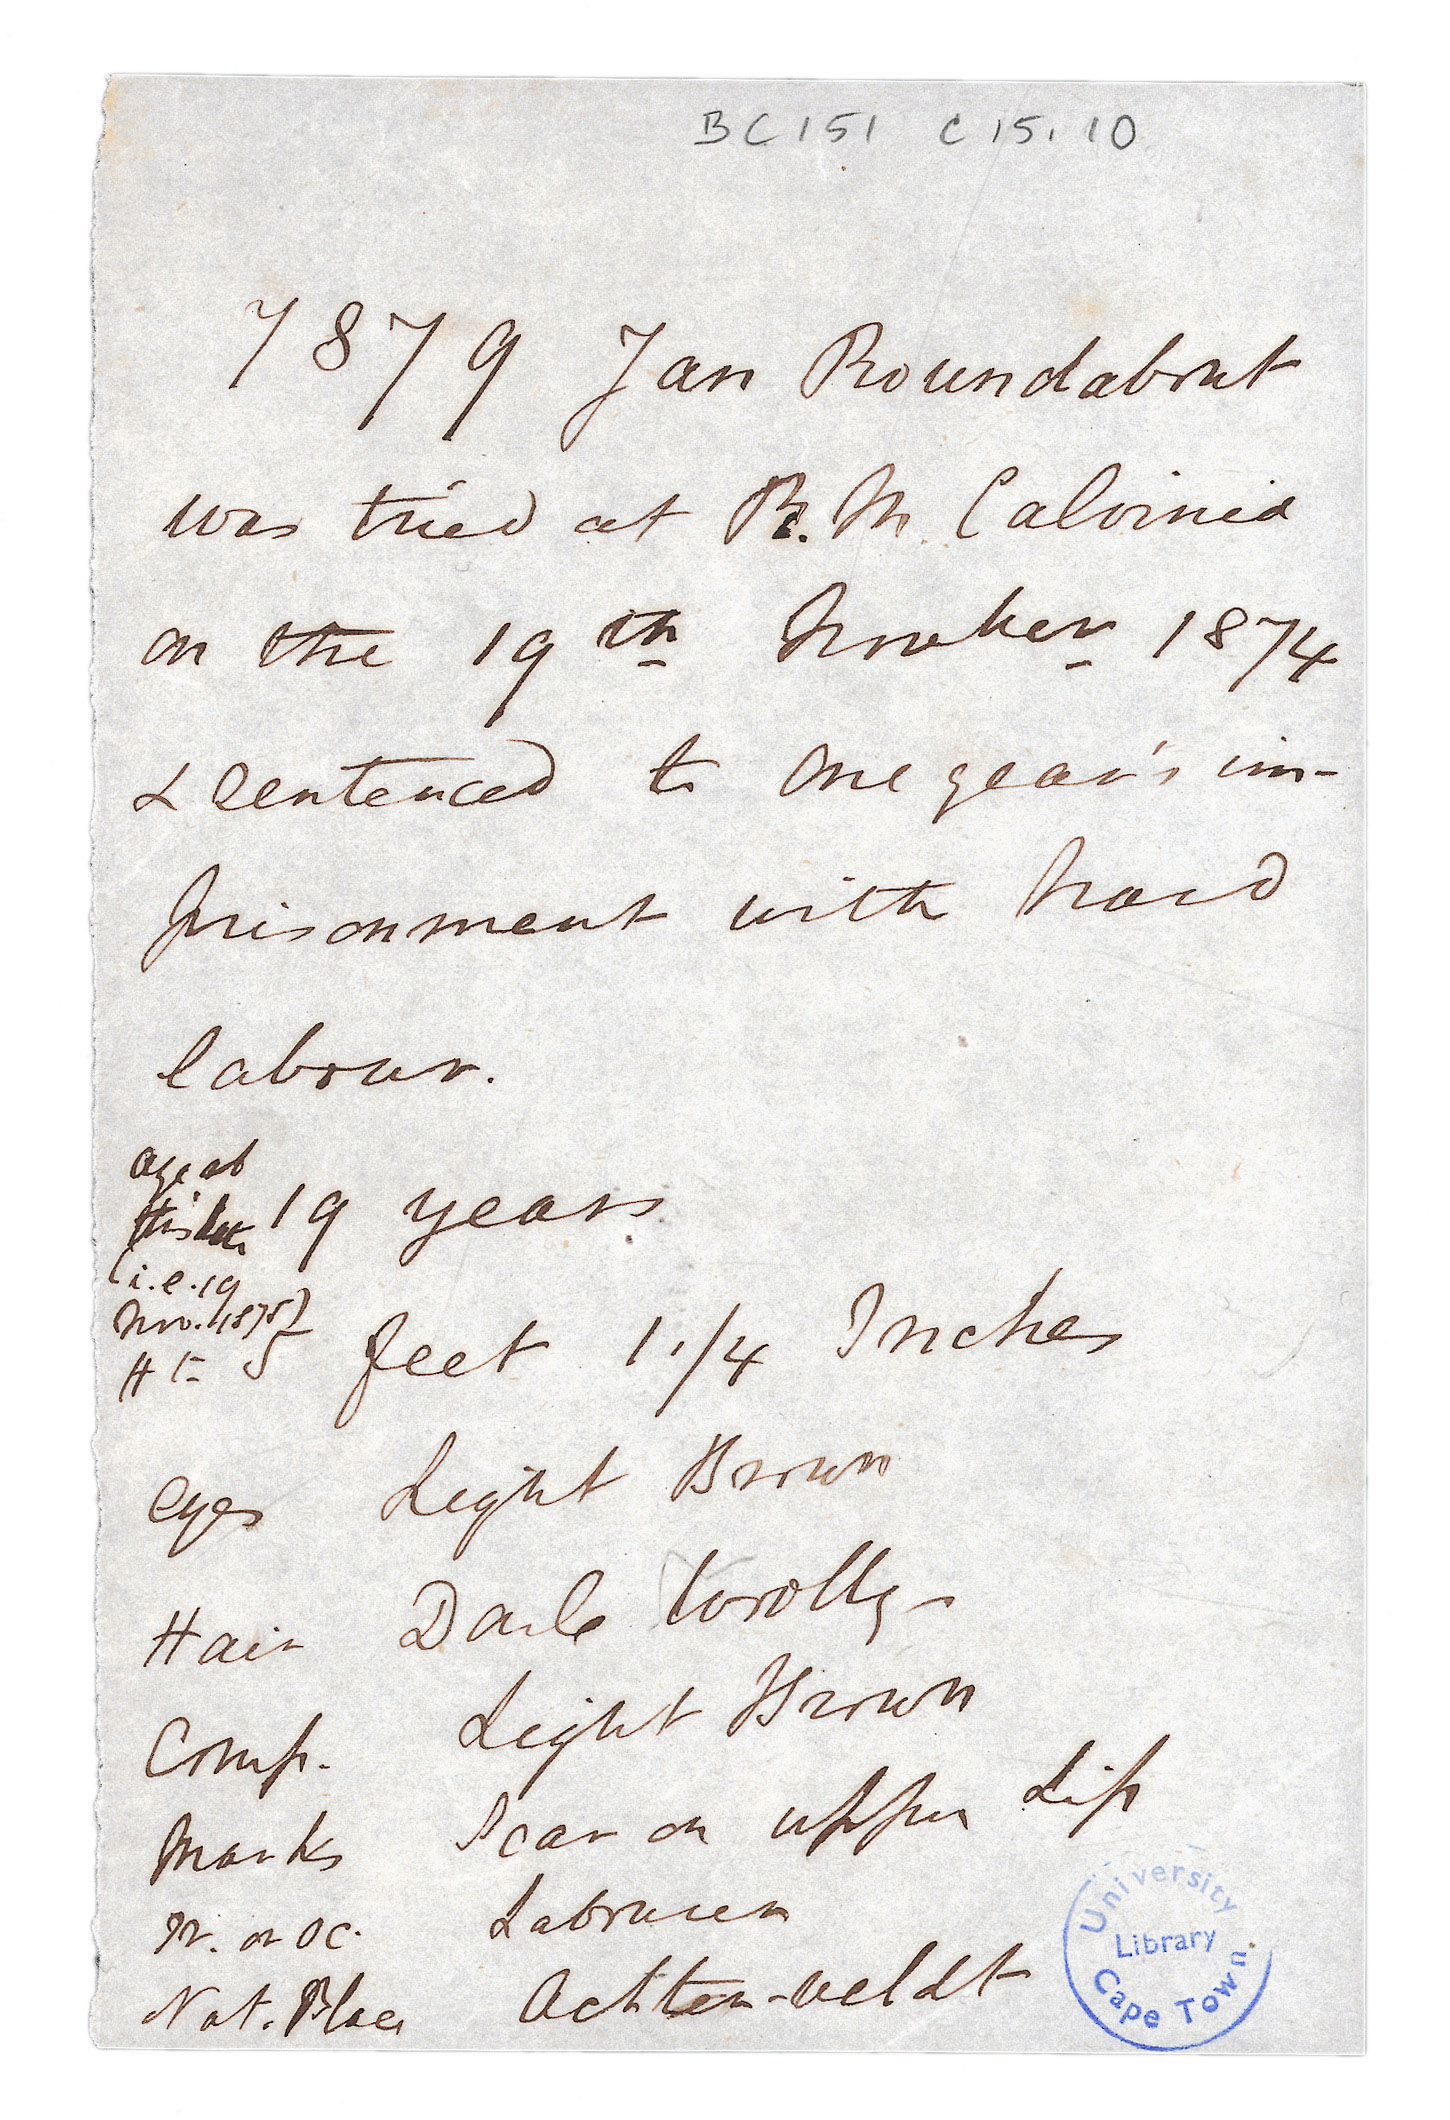 BC151 C15.10
7879 Jan Roundabout
was tried at R. M. Calvinia
on the 19th November 1874
& sentenced to one year's im-
prisonment with hard
labour.
age at
this date 19 years
(i.e. 19
Nov. 1875)
Ht 5 feet 1.1/4 Inches
eyes Light Brown
Hair Dark Woolly
Comp. Light Brown
Marks Scar on upper Lip
Tr. or Oc. Labourer
Nat. Place Achter-veldt
University
Library
Cape Town